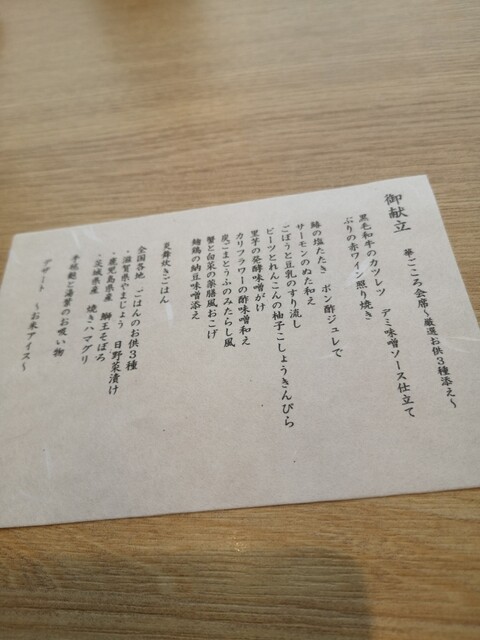 御献立
華ごころ会席～厳選お供3種添え～
黒毛和牛のカツレツ　デミ味噌ソース仕立て
ぶりの赤ワイン照り焼き
鰆の塩たたき　ポン酢ジュレで
サーモンのぬた和え
ごぼうと豆乳のすり流し
ビーツとれんこんの柚子こしょうきんぴら
里芋の発酵味噌がけ
カリフラワーの酢味噌和え
炭ごまとうふのみたらし風
蟹と白菜の薬膳風おこげ
麹鶏の納豆味噌添え
炊きごはん
全国各地　ごはんのお供3種
・滋賀県やまじょう　日野菜漬け
・鹿児島県産　鰤王そぼろ
・茨城県産　焼きハマグリ
手毬麩と湯葉のお吸い物
デザート　～お米アイス～